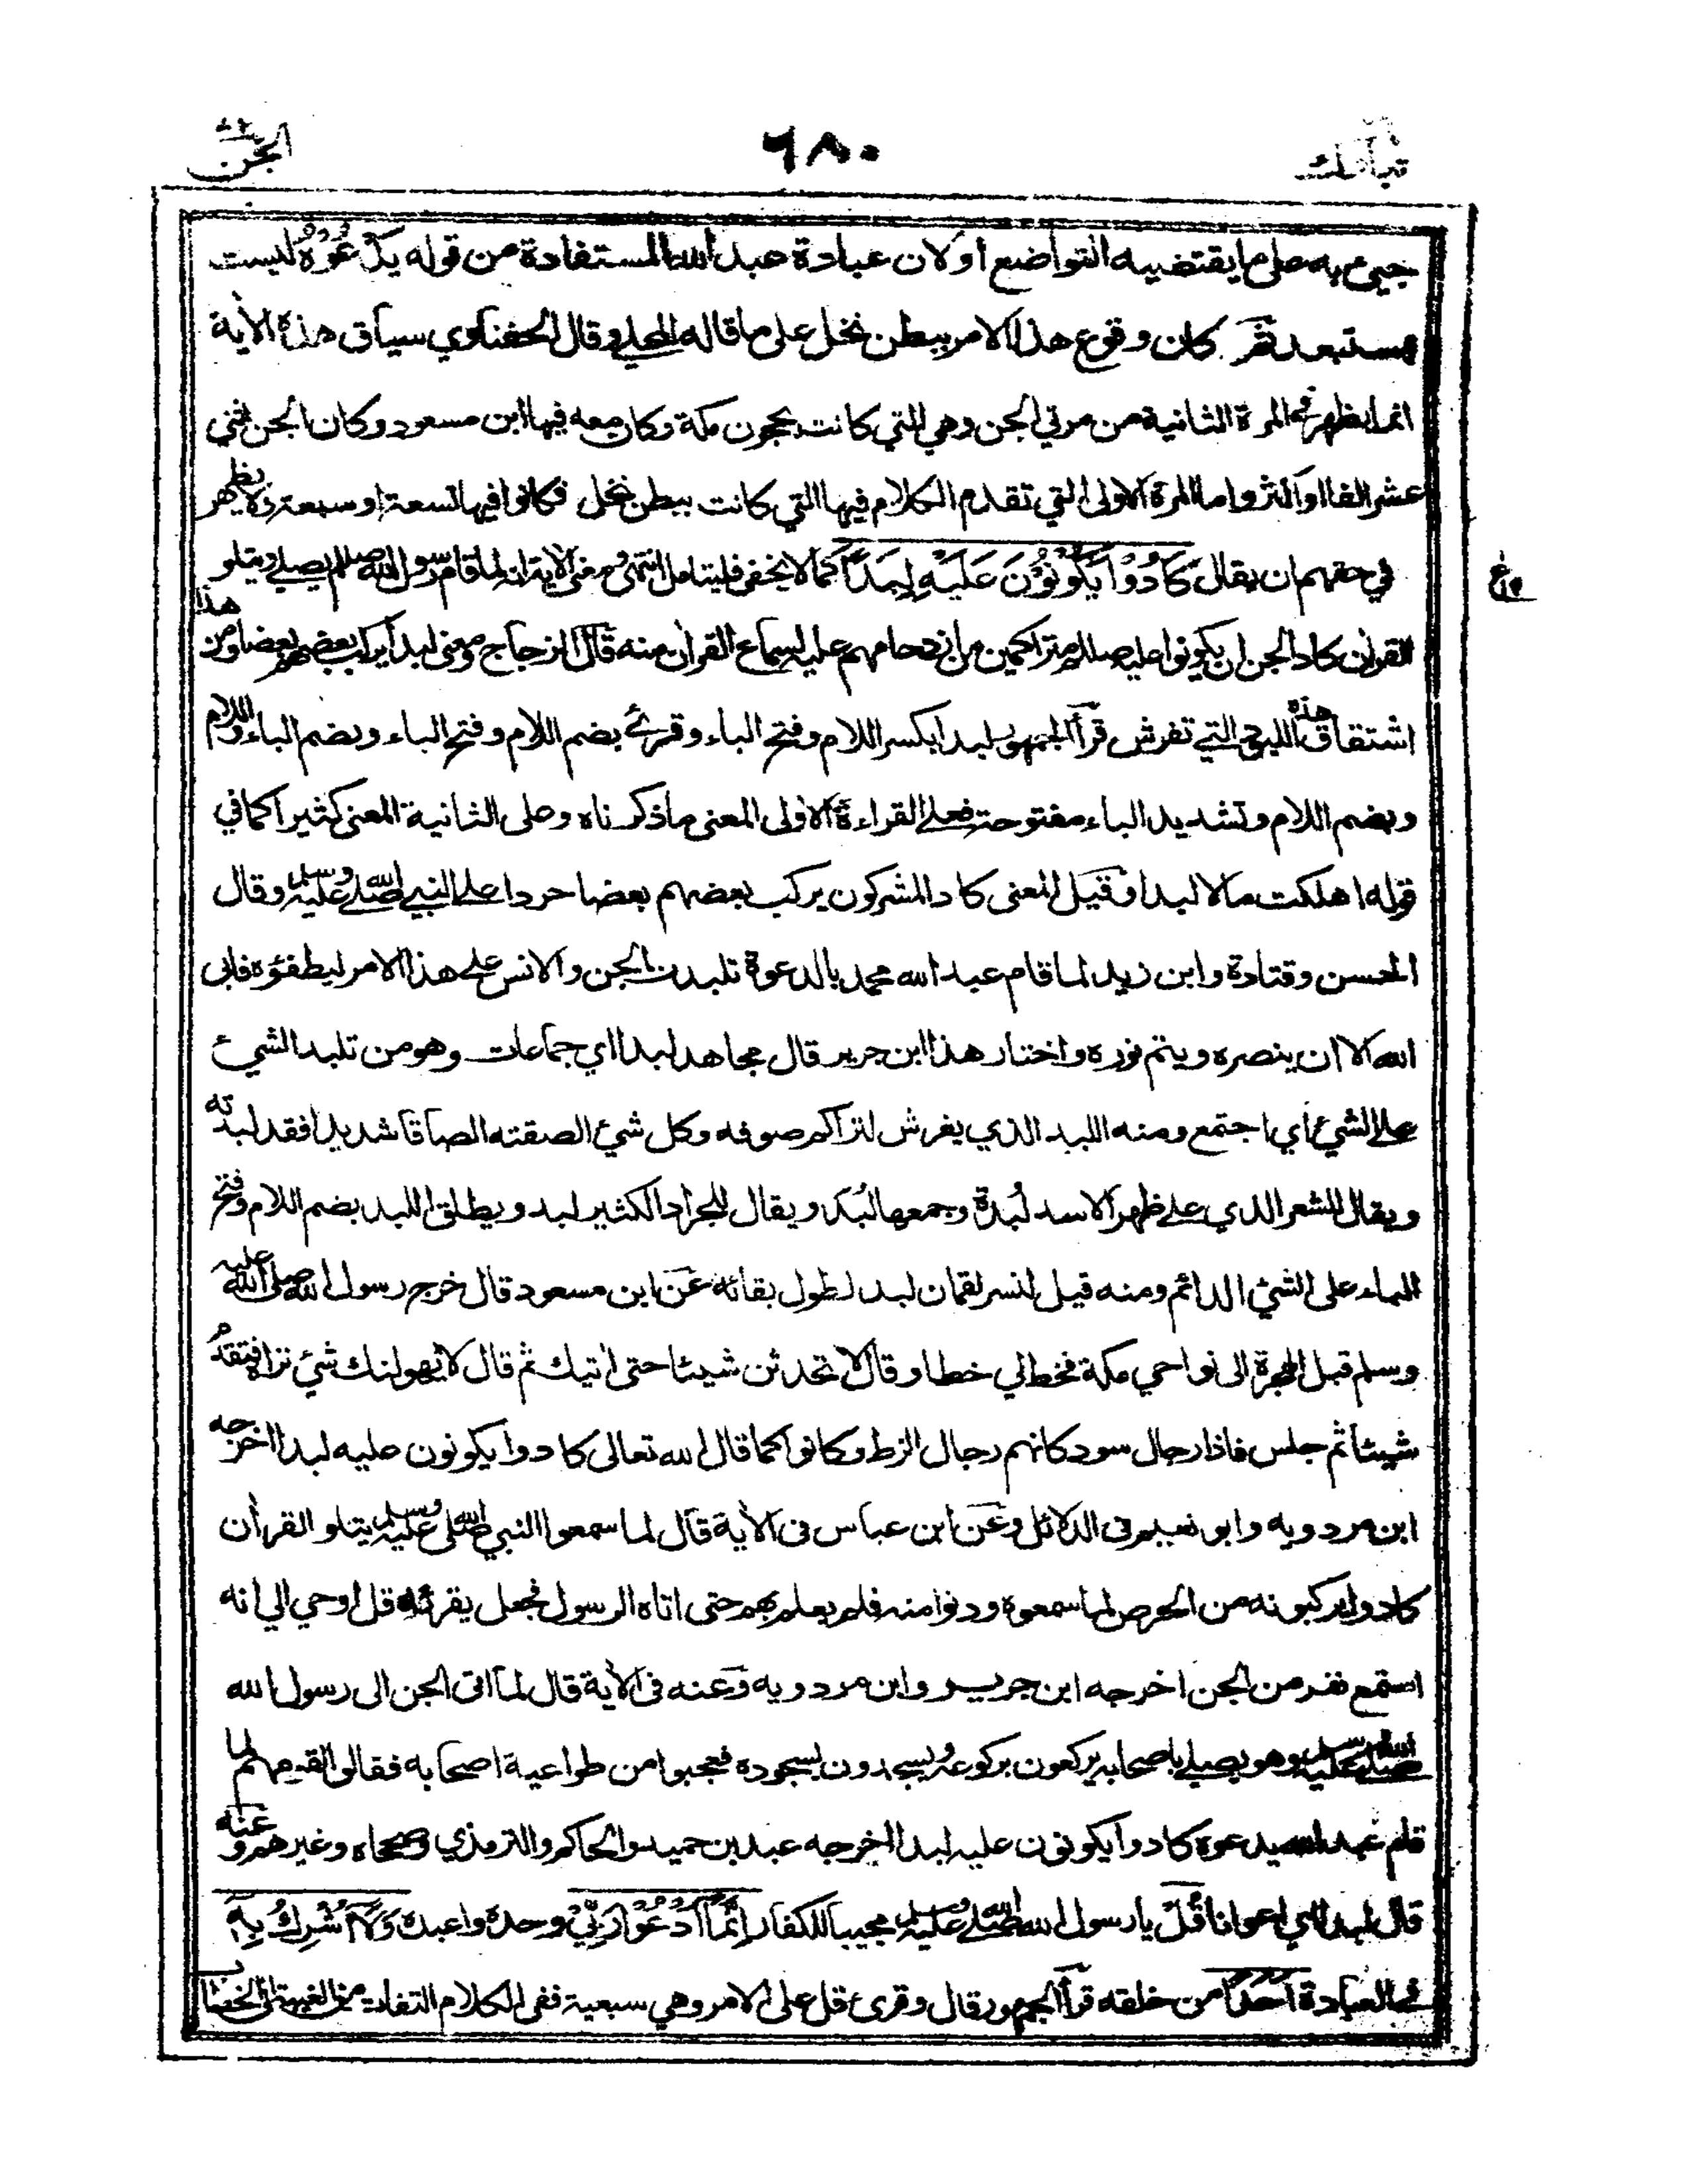 تبارك ٦٨٠ الجن
جيء به على ما يقتضيه التواضع أو لان عبادة عبد الله المستفادة من قوله يَدْعُوْهُ ليست
مستبعدة ثم كان وقوع هذا الامر ببطن نخل على ما قاله المحلي وقال الحفناوي سياق هذه الآية
انما يظهر في المرة الثانية من مرتي الجن وهي التي كانت بحجون مكة وكان معه فيها ابن مسعود وكان الجن اثني
عشر الفا او اكثر واما المرة الاولى التي تقدم الكلام فيها التي كانت ببطن نخل فكانوا فيها تسعة او سبعة ولا يظهر
في حقهم ان يقال كَادُوْا يَكُوْنُوْنَ عَلَيْهِ لِبَدًا كما لا يخفى فليتأمل انتهى ومعنى الآية انه لما قام رسول الله صللم يصلي ويتلو
القرآن كاد الجن ان يكونوا عليه صللم متراكمين من ازدحامهم عليه لسماع القرآن منه قال الزجاج ومعنى لبدا يركب بعضهم بعضا ومن هذا
اشتقاق هذه اللبود التي تفرش قرأ الجمهور لبدا بكسر اللام وفتح الباء وقرئ بضم اللام وفتح الباء وبضم الباء واللام
وبضم اللام وتشديد الباء مفتوحة فعلى القراءة الاولى المعنى ما ذكرناه وعلى الثانية المعنى كثيرا كما في
قوله اهلكت مالا لبدا وقيل المعنى كاد المشركون يركب بعضهم بعضا حردا على النبي صلى الله عليه وسلم وقال
الحسن وقتادة وابن زيد لما قام عبد الله محمد بالدعوة تلبدت الجن والانس على هذا الامر ليطفئوه فابى
الله الا ان ينصره ويتم نوره واختار هذا ابن جرير قال مجاهد لبدا اي جماعات وهو من تلبد الشيء
على الشيء اي اجتمع ومنه اللبد الذي يفرش لتراكم صوفه وكل شيء الصقته الصاقا شديدا فقد لبدته
ويقال للشعر الذي على ظهر الاسد لُبدة وجمعها لُبَد ويقال للجراد الكثير لبد ويطلق اللبد بضم اللام وفتح
الباء على الشيء الدائم ومنه قيل لنسر لقمان لبد لطول بقائه عن ابن مسعود قال خرج رسول الله صلى الله عليه
وسلم قبل الهجرة الى نواحي مكة فخط لي خطا وقال لا تحدثن شيئا حتى اتيك ثم قال لا يهولنك شيء تراه فتقدم
شيئا ثم جلس فاذا رجال سود كانهم رجال الزط وكانوا كما قال الله تعالى كادوا يكونون عليه لبدا اخرجه
ابن مردويه وابو نعيم في الدلائل وعن ابن عباس في الآية قال لما سمعوا النبي صلى الله عليه وسلم يتلو القرآن
كادوا يركبونه من الحرص لما سمعوه ودنوا منه فلم يعلم بهم حتى اتاه الرسول فجعل يقرئه قل اوحي الي انه
استمع نفر من الجن اخرجه ابن جرير وابن مردويه وعنه في الآية قال لما اتى الجن الى رسول الله
صلى الله عليه وسلم وهو يصلي باصحابه يركعون بركوعه ويسجدون بسجوده فعجبوا من طواعية اصحابه فقالوا لقومهم لما
قام عبد الله يدعوه كادوا يكونون عليه لبدا اخرجه عبد بن حميد والحاكم والترمذي وصححاه وغيرهم وعنه
قال لبدا اي اعوانا قُلْ يا رسول الله صلى الله عليه وسلم مجيبا للكفار اِنَّمَآ اَدْعُوْا رَبِّيْ وحده واعبده وَلَآ اُشْرِكُ بِهٖٓ
في العبادة اَحَدًا من خلقه قرأ الجمهور قال وقرئ قل على الامر وهي سبعية ففي الكلام التفات من الغيبة الى الخطاب